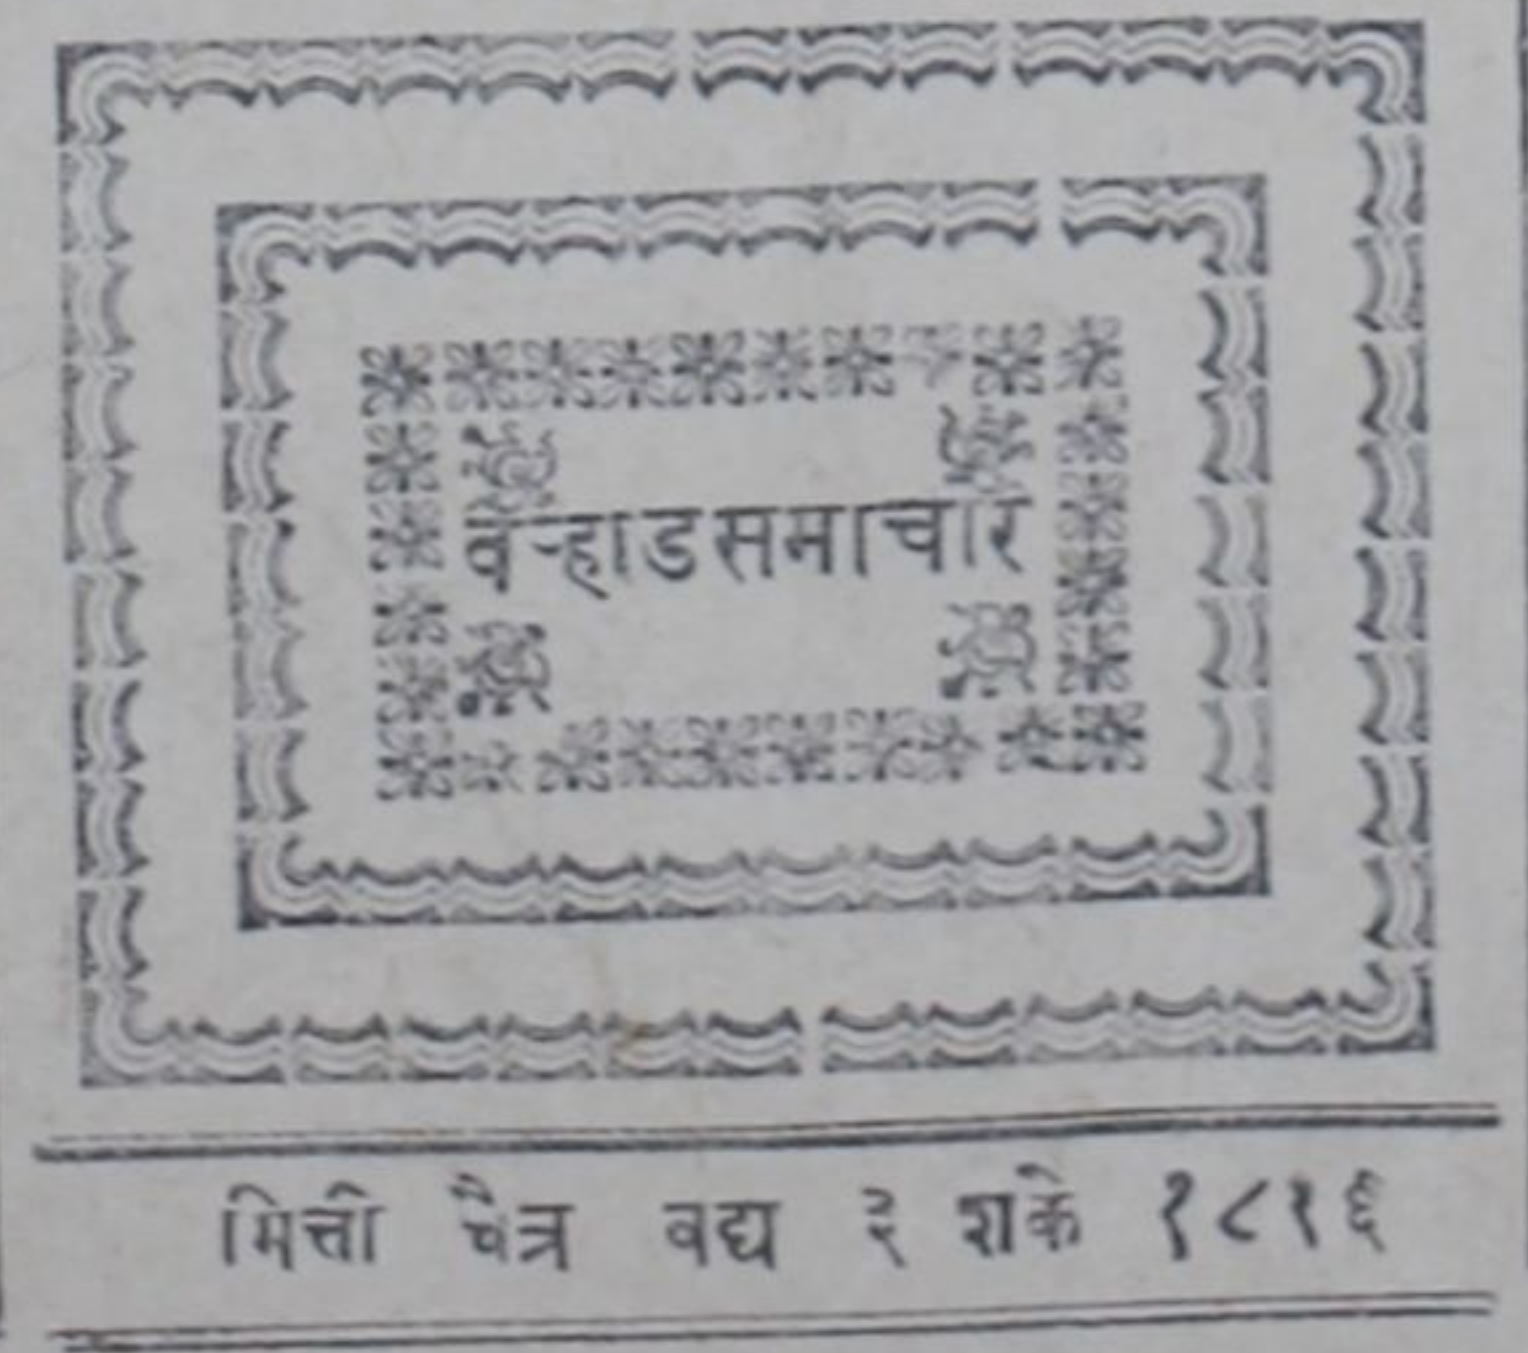 वऱ्हाडसमाचार
मित्ती चैत्र वद्य ३ शके १८१६